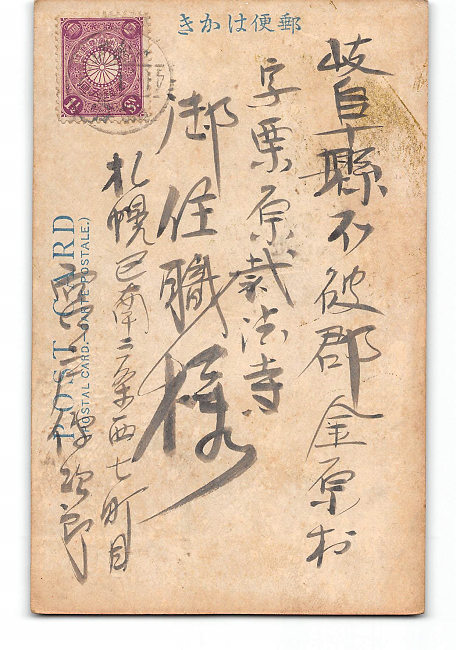 きかは便郵
岐阜縣不破郡
金原村
字栗原
法寺
御住職様
札幌区南二条西七町目
次郎
POST CARD
POSTAL CARD—CARTE POSTALE.)
1½